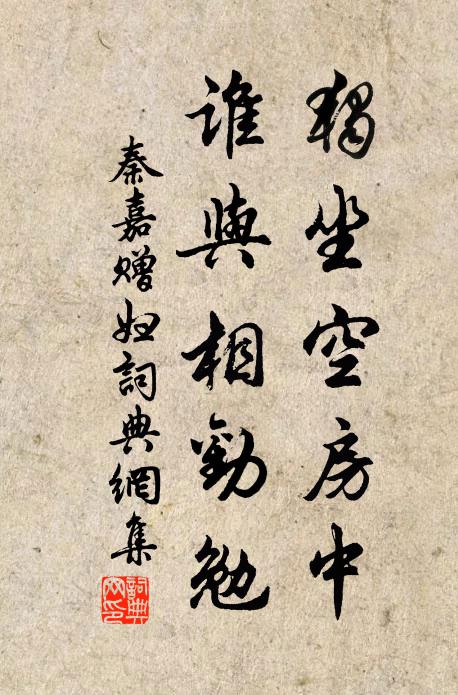 獨坐空房中
誰與相勸勉
秦嘉贈婦詞典網集
詞典网印